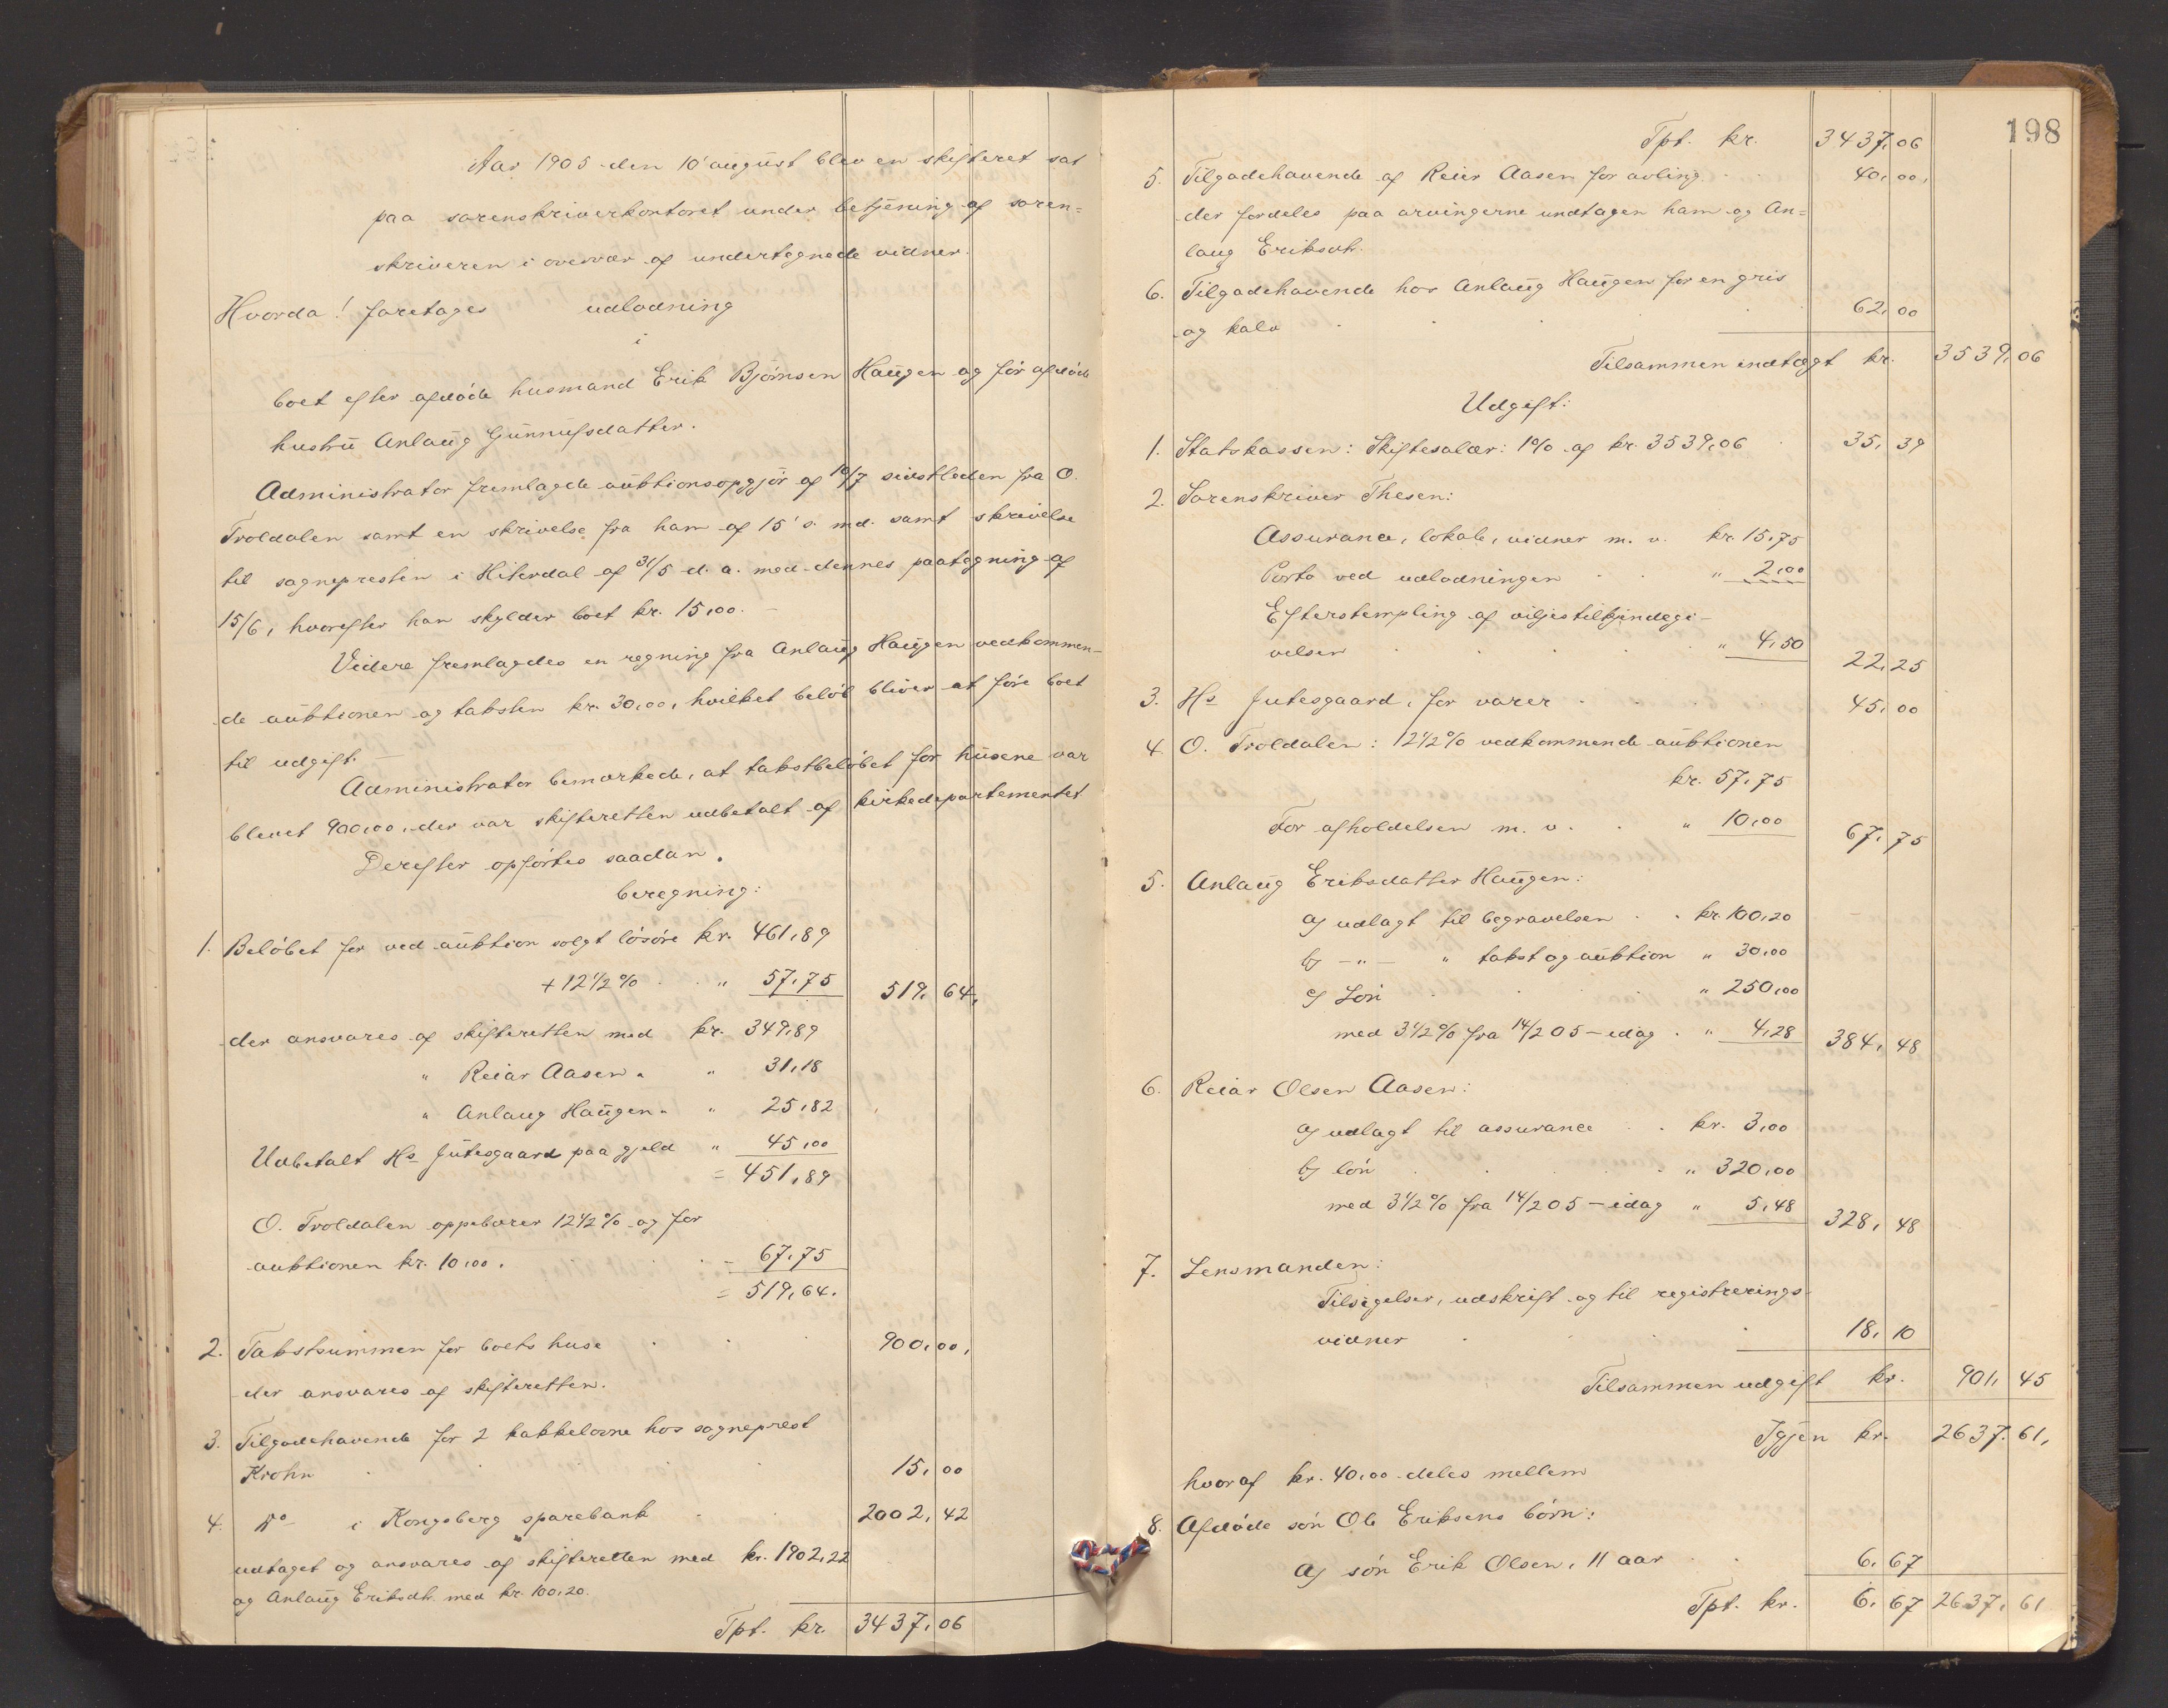 Aar 1905 den 10' august blev en skifteret sat
paa sorenskriverkontoret under betjening af soren=
skriveren i overvær af undertegnede vidner.
Hvorda! foretages udlodning
i
boet efter afdøde husmand Erik Bjørnsen Haugen og før afdøde
hustru Anlaug Gunnufsdatter.
Administrator fremlagde auktionsopgjør af 10/7 sidstleden fra O.
Troldalen samt en skrivelse fra ham af 15' s. md. samt skrivelse
til sognepresten i Hiterdal af 31/5 d. a. med dennes paategning af
15/6, hvorefter han skylder boet kr. 15,00.
Videre fremlagdes en regning fra Anlaug Haugen vedkommen-
de auktionen og taksten kr. 30,00, hvilket beløb bliver at føre boet
til udgift.
Administrator bemærkede, at takstbeløbet for husene var
blevet 900,00, der var skifteretten udbetalt af kirkedepartementet
Derefter opførtes saadan
beregning:
1. Beløbet for ved auktion solgt løsøre kr. 461,89
+ 12 1/2 % " 57,75 519,64,
der ansvares af skifteretten med kr. 349,89
" Reiar Aasen " " 31,18
" Anlaug Haugen " " 25,82
Udbetalt Hs Jutesgaard paa gjeld " 45,00
= 451,89
O. Troldalen oppebærer 12 1/2 % og for
auktionen kr. 10,00. - 67,75
= 519,64.
2. Takstsummen for boets huse 900,00,
der ansvares af skifteretten.
3. Tilgodehavende for 2 kakkelovne hos sogneprest
Krohn 15,00
4. Do i Kongsberg sparebank 2002,42
udtaget og ansvares af skifteretten med kr. 1902,22
og Anlaug Eriksdtr. med kr. 100,20.
Tpt. kr. 3437,06
198
Tpt. kr. 3437,06
5. Tilgodehavende af Reier Aasen for avling 40,00,
der fordeles paa arvingerne undtagen ham og An=
laug Eriksdtr.
6. Tilgodehavende hos Anlaug Haugen for en gris
og kalv 62,00
Tilsammen indtægt kr. 3539,06
Udgift:
1. Statskassen: Skiftesalær: 1% af kr. 3539,06 35,39
2. Sorenskriver Thesen:
Assurance, lokale, vidner m. v. kr. 15,75
Porto ved udlodningen " 2,00
Efterstempling af viljestilkjendegi-
velser " 4,50 22,25
3. Hs Jutesgaard, for varer 45,00
4. O. Troldalen: 12 1/2 % vedkommende auktionen
kr. 57,75
For afholdelsen m. v. " 10,00 67,75
5. Anlaug Eriksdatter Haugen:
a) udlagt til begravelsen kr. 100,20
b) -"- " takst og auktion " 30,00
c) Løn " 250,00
med 3 1/2 % fra 14/2 05 - idag " 4,28 384,48
6. Reiar Olsen Aasen:
a) udlagt til assurance kr. 3,00
b) løn " 320,00
med 3 1/2 % fra 14/2 05 - idag " 5,48 328,48
7. Lensmanden:
Tilsigelser, udskrift og til registrerings-
vidner 18,10
Tilsammen udgift kr. 901,45
Igjen kr. 2637,61,
hvoraf kr. 40,00 deles mellem
8. Afdøde søn Ole Eriksens børn:
a) søn Erik Olsen, 11 aar 6,67
Tpt. kr. 6,67 2637,61